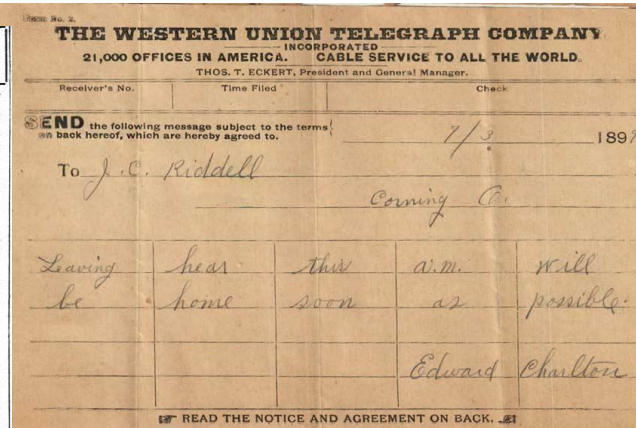 Form No. 2.
THE WESTERN UNION TELEGRAPH COMPANY
INCORPORATED
21,000 OFFICES IN AMERICA. CABLE SERVICE TO ALL THE WORLD.
THOS. T. ECKERT, President and General Manager.
Receiver's No. Time Filed Check
SEND the following message subject to the terms
on back hereof, which are hereby agreed to.
7/3 1899
To J. C. Riddell
Corning O.
Leaving hear this a.m. will
be home soon as possible.
Edward Charlton
☞ READ THE NOTICE AND AGREEMENT ON BACK. ☜